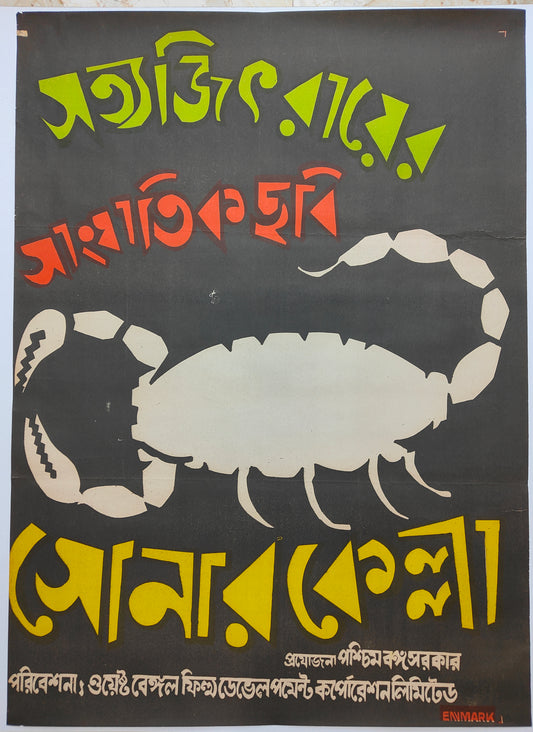 সত্যজিৎ রায়ের
সাংঘাতিক ছবি
সোনার কেল্লা
প্রযোজনা পশ্চিম বঙ্গ সরকার
পরিবেশনা: ওয়েষ্ট বেঙ্গল ফিল্ম ডেভেলপমেন্ট কর্পোরেশন লিমিটেড
ENMARK